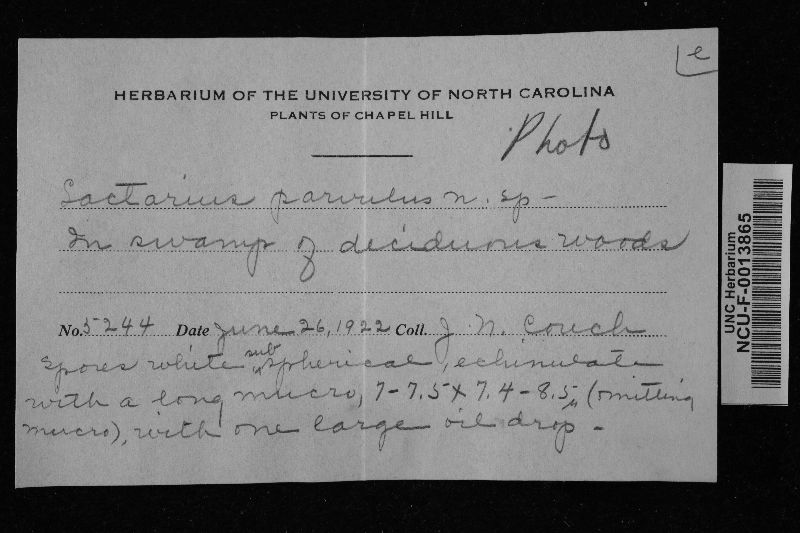 e
HERBARIUM OF THE UNIVERSITY OF NORTH CAROLINA
PLANTS OF CHAPEL HILL
Photo
Lactarius parvulus n. sp-
In swamp of deciduous woods
No. 5244 Date June 26, 1922 Coll. J. N. Couch
Spores white subspherical, echinulate
with a long mucro, 7-7.5 x 7.4-8.5µ (omitting
mucro), with one large oil drop -
UNC Herbarium
NCU-F-0013865